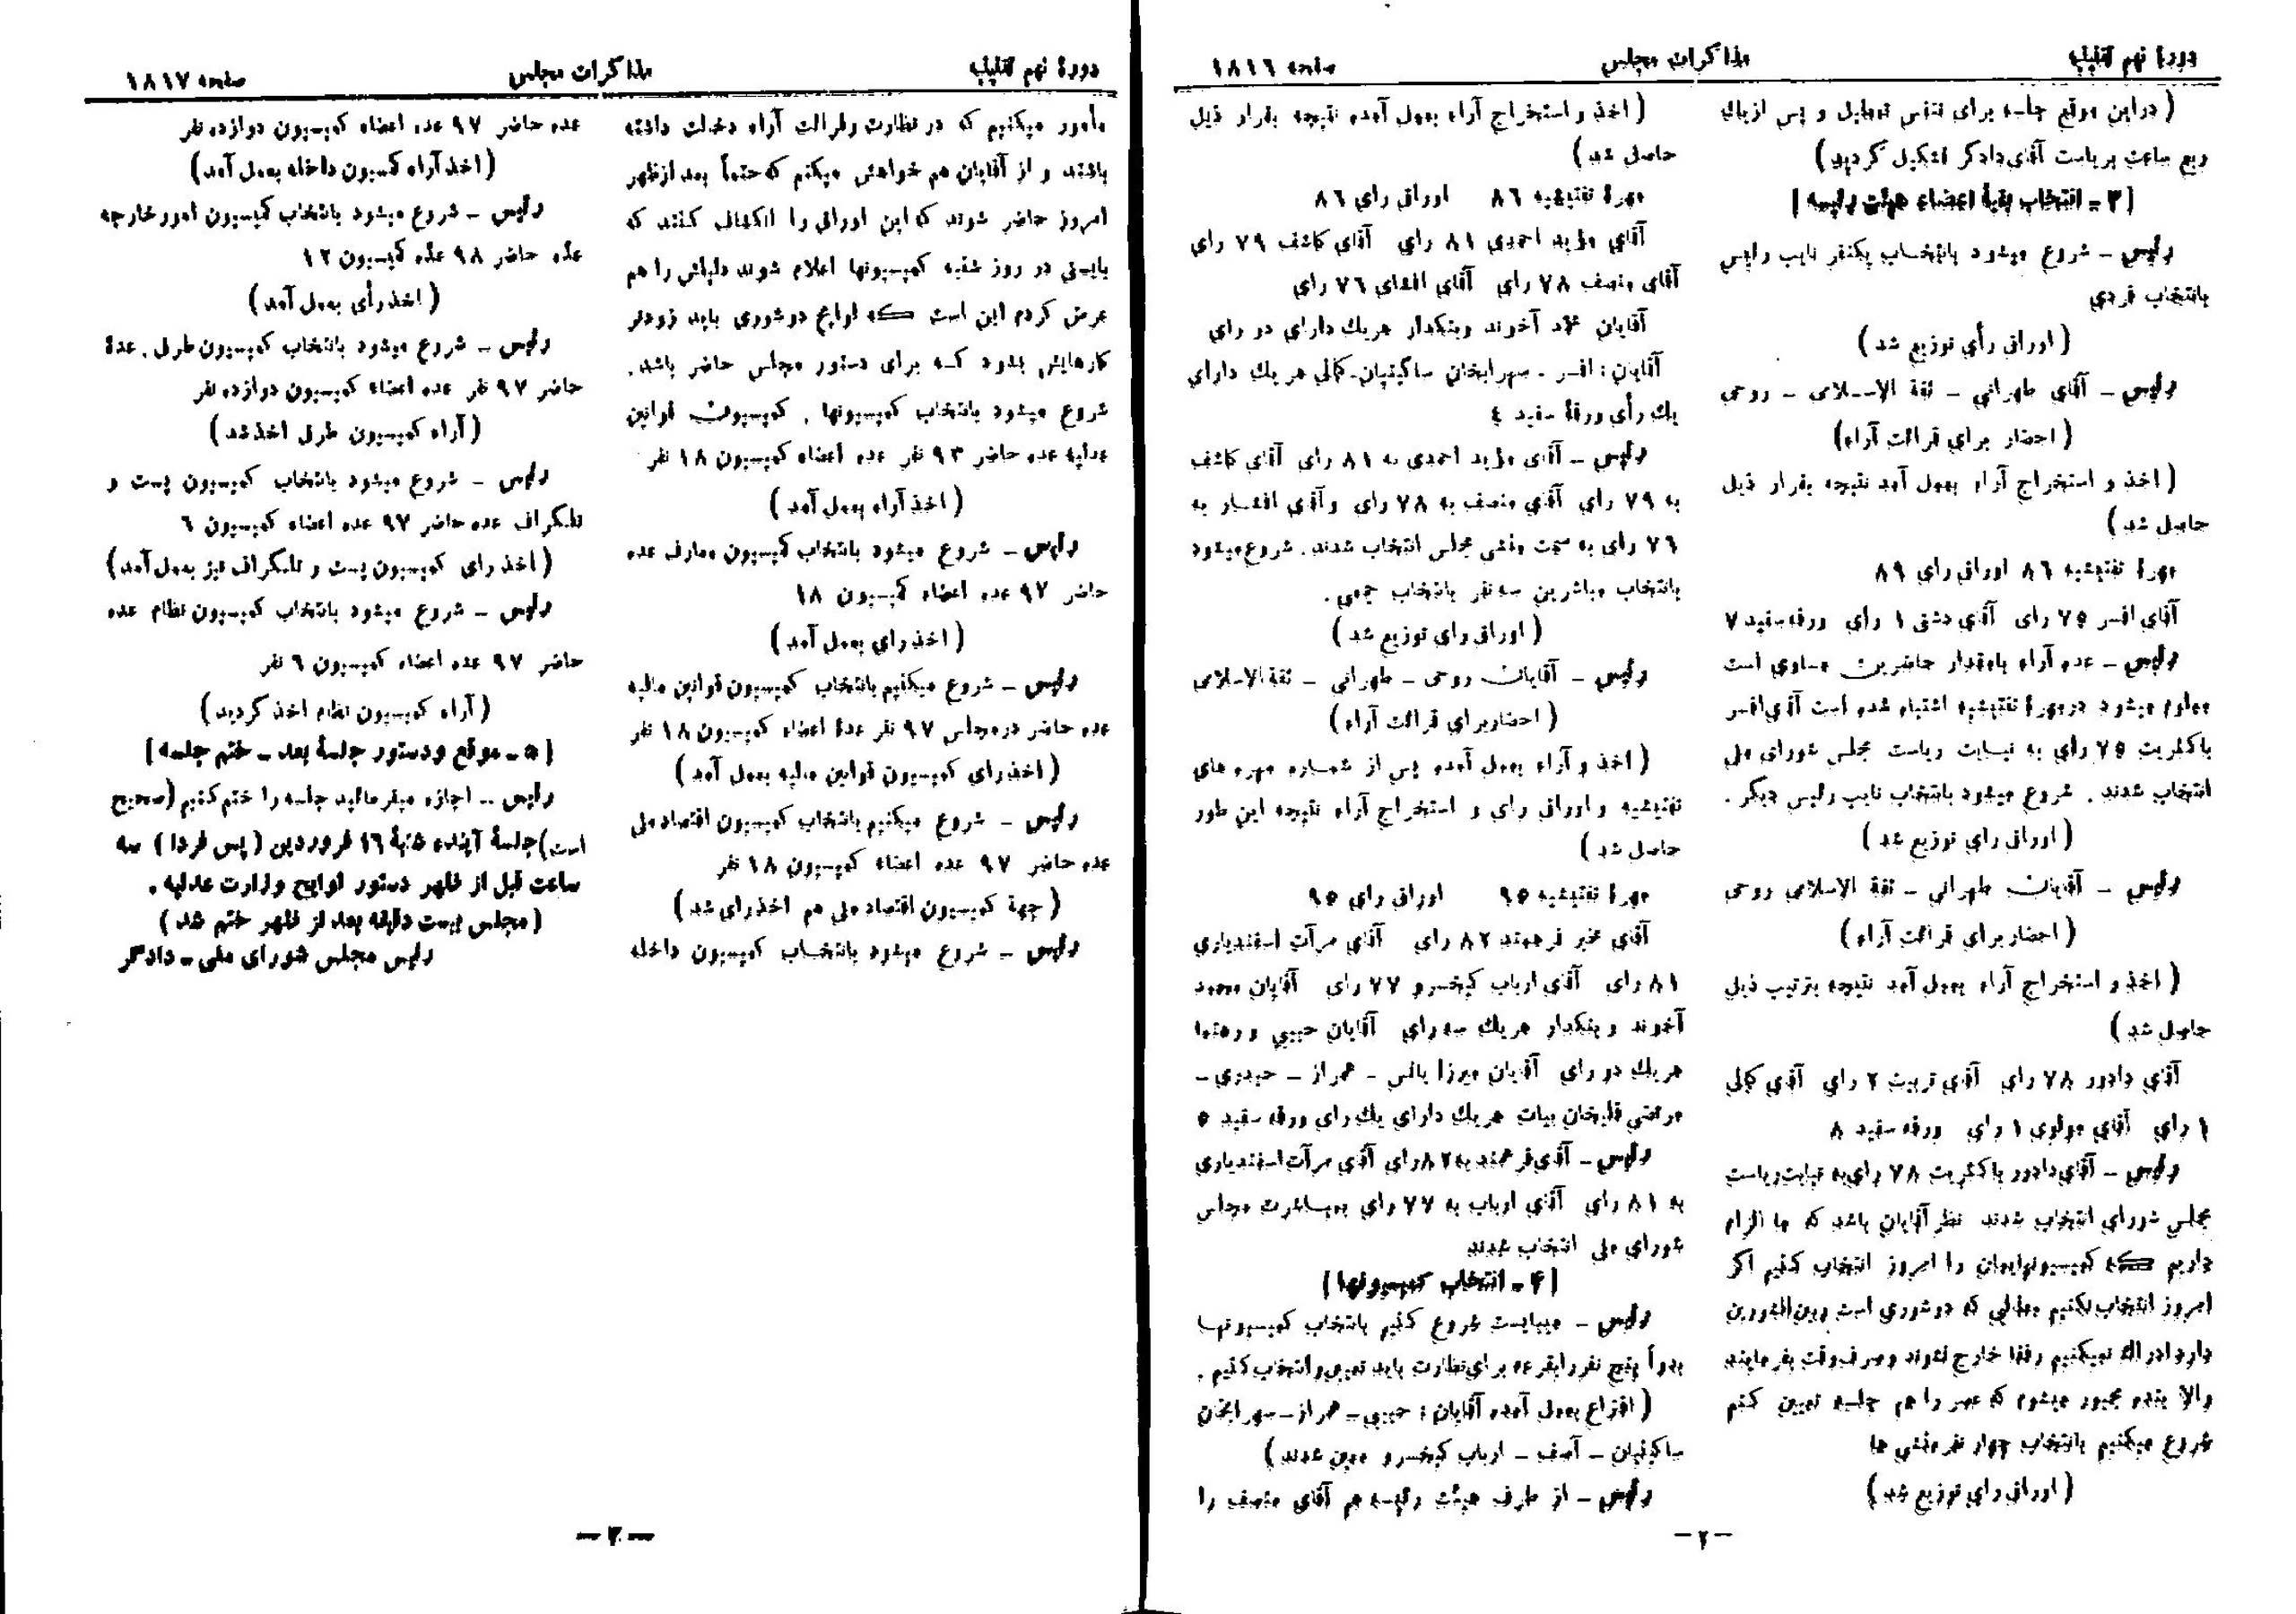 دورهٔ نهم تقنینیه
مذاکرات مجلس
صفحه ۱۸۱۶
( در این موقع جلسه برای تنفس تعطیل و پس از یك
ربع ساعت بریاست آقای دادگر تشکیل گردید )
[ ۳ ـ انتخاب بقیهٔ اعضاء هیئت رئیسه ]
رئیس ـ شروع میشود بانتخاب یکنفر نایب رئیس
بانتخاب فردی
( اوراق رأی توزیع شد )
رئیس ـ آقای طهرانی ـ ثقة الاسلامی ـ روحی
( احضار برای قرائت آراء )
( اخذ و استخراج آراء بعمل آمد نتیجه بقرار ذیل
حاصل شد )
مهرهٔ تفتیشیه ۸٦ اوراق رای ۸۹
آقای افسر ۷۵ رای آقای دشتی ۱ رای ورقه سفید ۷
رئیس ـ عده آراء بامقدار حاضرین مساوی است
معلوم میشود در مهرهٔ تفتیشیه اشتباه شده است آقای افسر
باکثریت ۷۵ رأی به نیابت ریاست مجلس شورای ملی
انتخاب شدند . شروع میشود بانتخاب نایب رئیس دیگر .
( اوراق رای توزیع شد )
رئیس ـ آقایان طهرانی ـ ثقة الاسلامی روحی
( احضار برای قرائت آراء )
( اخذ و استخراج آراء بعمل آمد نتیجه بترتیب ذیل
حاصل شد )
آقای دادور ۷۸ رای آقای تربیت ۲ رای آقای کمالی
۱ رای آقای مولوی ۱ رای ورقه سفید ۸
رئیس ـ آقای دادور باکثریت ۷۸ رای به نیابت ریاست
مجلس شورای انتخاب شدند نظر آقایان باشد که ما الزام
داریم که کمیسیونهایمان را امروز انتخاب کنیم اگر
امروز انتخاب نکنیم مطالبی که دو شوری است و بین الشورین
دارد ادراك نمیکنیم رفقا خارج نشوند و صرف وقت بفرمایند
والا بنده مجبور میشوم که عصر را هم جلسه تعیین کنم
شروع میکنیم بانتخاب چهار نفر منشی ها
( اوراق رای توزیع شد )
( اخذ و استخراج آراء بعمل آمده نتیجه بقرار ذیل
حاصل شد )
مهرهٔ تفتیشیه ۸٦ اوراق رای ۸٦
آقای مؤید احمدی ۸۱ رای آقای کاشف ۷۹ رای
آقای منصف ۷۸ رای آقای افشار ۷٦ رای
آقایان محمد آخوند وینکدار هریك دارای دو رای
آقایان : افسر ـ سهرابخان ساگینیان ـ کمالی هر یك دارای
یك رأی ورقهٔ سفید ٤
رئیس ـ آقای مؤید احمدی به ۸۱ رای آقای کاشف
به ۷۹ رای آقای منصف به ۷۸ رای و آقای افشار به
۷٦ رای به سمت منشی مجلس انتخاب شدند . شروع میشود
بانتخاب مباشرین سه نفر بانتخاب جمعی .
( اوراق رای توزیع شد )
رئیس ـ آقایان روحی ـ طهرانی ـ ثقة الاسلامی
( احضار برای قرائت آراء )
( اخذ و آراء بعمل آمده پس از شماره مهره های
تفتیشیه و اوراق رای و استخراج آراء نتیجه این طور
حاصل شد )
مهرهٔ تفتیشیه ۹۵ اوراق رای ۹۵
آقای مخبر فرهمند ۸۲ رای آقای مرآت اسفندیاری
۸۱ رای آقای ارباب کیخسرو ۷۷ رای آقایان محمود
آخوند و ینکدار هریك سه رای آقایان حبیبی و رهنما
هریك دو رای آقایان میرزا یانس ـ همراز ـ حیدری ـ
مرتضی قلیخان بیات هریك دارای یك رای ورقه سفید ۵
رئیس ـ آقای فرهمند به ۸۲ رای آقای مرآت اسفندیاری
به ۸۱ رای آقای ارباب به ۷۷ رای بمباشرت مجلس
شورای ملی انتخاب شدند
[ ۴ ـ انتخاب کمیسیونها ]
رئیس ـ میبایست شروع کنیم بانتخاب کمیسیونها
بدواً پنج نفر را بقرعه برای نظارت باید تعیین و انتخاب کنیم .
( اقتراع بعمل آمده آقایان : حبیبی ـ همراز ـ سهرابخان
ساگینیان ـ آصف ـ ارباب کیخسرو معین شدند )
رئیس ـ از طرف هیئت رئیسه هم آقای منصف را
ـ ۲ ـ
دورهٔ نهم تقنینیه
مذاکرات مجلس
صفحه ۱۸۱۷
مأمور میکنیم که در نظارت و قرائت آراء دخالت داشته
باشند و از آقایان هم خواهش میکنم که حتماً بعد از ظهر
امروز حاضر شوند که این اوراق را انکشاف کنند که
بایستی در روز شنبه کمیسیونها اعلام شوند دلیلش را هم
عرض کردم این است که لوایح دو شوری باید زودتر
کارهایش بشود که برای دستور مجلس حاضر باشد .
شروع میشود بانتخاب کمیسیونها . کمیسیون قوانین
عدلیه عده حاضر ۹۳ نفر عده اعضاء کمیسیون ۱۸ نفر
( اخذ آراء بعمل آمد )
رئیس ـ شروع میشود بانتخاب کمیسیون معارف عده
حاضر ۹۷ عده اعضاء کمیسیون ۱۸
( اخذ رای بعمل آمد )
رئیس ـ شروع میکنیم بانتخاب کمیسیون قوانین مالیه
عده حاضر در مجلس ۹۷ نفر عدهٔ اعضاء کمیسیون ۱۸ نفر
( اخذ رای کمیسیون قوانین مالیه بعمل آمد )
رئیس ـ شروع میکنیم بانتخاب کمیسیون اقتصاد ملی
عده حاضر ۹۷ عده اعضاء کمیسیون ۱۸ نفر
( جهة کمیسیون اقتصاد ملی هم اخذ رای شد )
رئیس ـ شروع میشود بانتخاب کمیسیون داخله
عده حاضر ۹۷ عده اعضاء کمیسیون دوازده نفر
( اخذ آراء کمسیون داخله بعمل آمد )
رئیس ـ شروع میشود بانتخاب کمیسیون امور خارجه
عده حاضر ۹۸ عده کمیسیون ۱۲
( اخذ رأی بعمل آمد )
رئیس ـ شروع میشود بانتخاب کمیسیون طرق . عدهٔ
حاضر ۹۷ نفر عده اعضاء کمیسیون دوازده نفر
( آراء کمیسیون طرق اخذ شد )
رئیس ـ شروع میشود بانتخاب کمیسیون پست و
تلگراف عده حاضر ۹۷ عده اعضاء کمیسیون ٦
( اخذ رای کمیسیون پست و تلگراف نیز بعمل آمد )
رئیس ـ شروع میشود بانتخاب کمیسیون نظام عده
حاضر ۹۷ عده اعضاء کمیسیون ٦ نفر
( آراء کمیسیون نظام اخذ گردید )
[ ۵ ـ موقع و دستور جلسهٔ بعد ـ ختم جلسه ]
رئیس ـ اجازه میفرمائید جلسه را ختم کنیم ( صحیح
است ) جلسهٔ آینده شنبهٔ ۱٦ فروردین ( پس فردا ) سه
ساعت قبل از ظهر دستور لوایح وزارت عدلیه .
( مجلس بیست دقیقه بعد از ظهر ختم شد )
رئیس مجلس شورای ملی ـ دادگر
ـ ۳ ـ